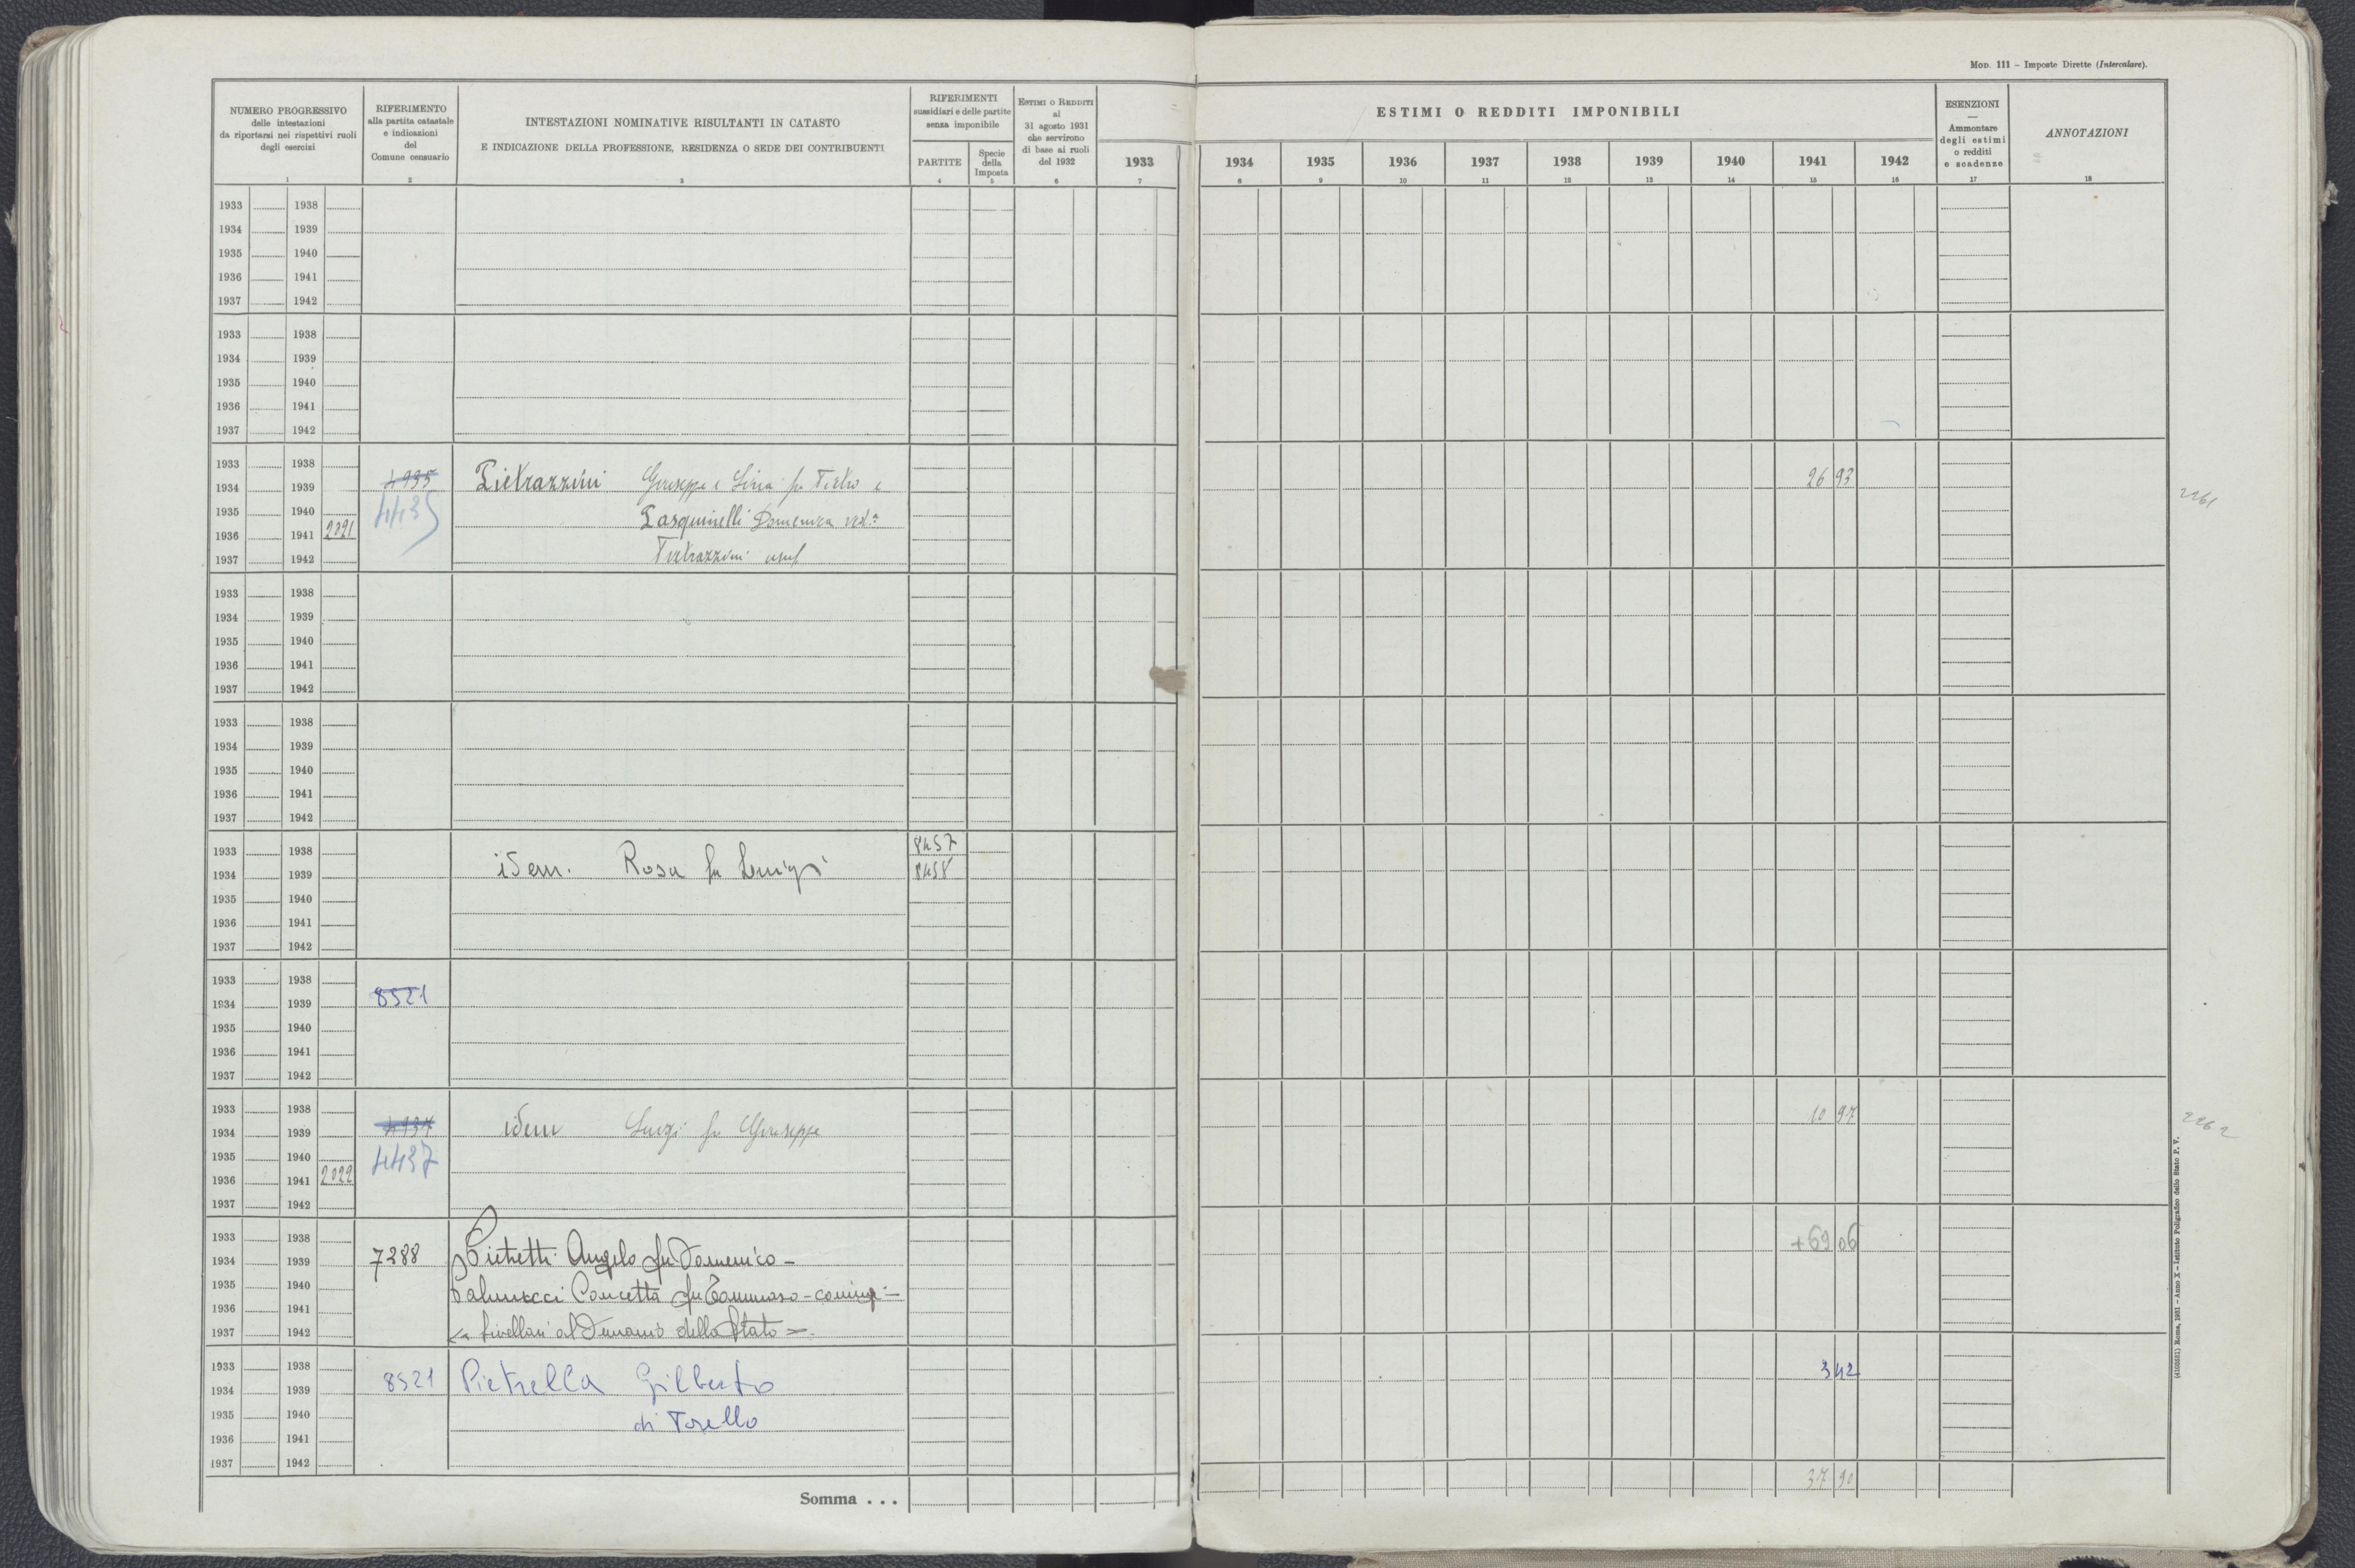 MOD. 111 – Imposte Dirette (Intercalare).
NUMERO PROGRESSIVO
delle intestazioni
da riportarsi nei rispettivi ruoli
degli esercizi
1
RIFERIMENTO
alla partita catastale
e indicazioni
del
Comune censuario
2
INTESTAZIONI NOMINATIVE RISULTANTI IN CATASTO
E INDICAZIONE DELLA PROFESSIONE, RESIDENZA O SEDE DEI CONTRIBUENTI
3
RIFERIMENTI
sussidiari e delle partite
senza imponibile
PARTITE
4
Specie
della
Imposta
5
ESTIMI O REDDITI
al
31 agosto 1931
che servirono
di base ai ruoli
del 1932
6
ESTIMI O REDDITI IMPONIBILI
1933 1934 1935 1936 1937 1938 1939 1940 1941 1942
7 8 9 10 11 12 13 14 15 16
ESENZIONI
—
Ammontare
degli estimi
o redditi
e scadenze
17
ANNOTAZIONI
18
1933 1938
1934 1939
1935 1940
1936 1941
1937 1942
1933 1938
1934 1939
1935 1940
1936 1941
1937 1942
1933 1938
1934 1939 4935 Pietrazzini Giuseppe e Siria fu Pietro e 26 93
1935 1940 4435 Pasquinelli Domenica ved.a 2261
1936 1941 2021
1937 1942 Pietrazzini usuf
1933 1938
1934 1939
1935 1940
1936 1941
1937 1942
1933 1938
1934 1939
1935 1940
1936 1941
1937 1942
1933 1938 8457
1934 1939 idem. Rosa fu Luigi 8458
1935 1940
1936 1941
1937 1942
1933 1938
1934 1939 8521
1935 1940
1936 1941
1937 1942
1933 1938
1934 1939 4937 idem Luigi fu Giuseppe 10 97 2262
1935 1940 4437
1936 1941 2022
1937 1942
1933 1938
1934 1939 7288 Pietretti Angelo fu Domenico – +69 06
1935 1940 Concetta fu Tommaso – coniugi –
1936 1941
1937 1942 livellari al Demanio dello Stato
1933 1938
1934 1939 8521 Pietrella Gilberto 3 42
1935 1940 di Torello
1936 1941
1937 1942
Somma . . . 37 90
(4103681) Roma, 1931 – Anno X – Istituto Poligrafico dello Stato P. V.